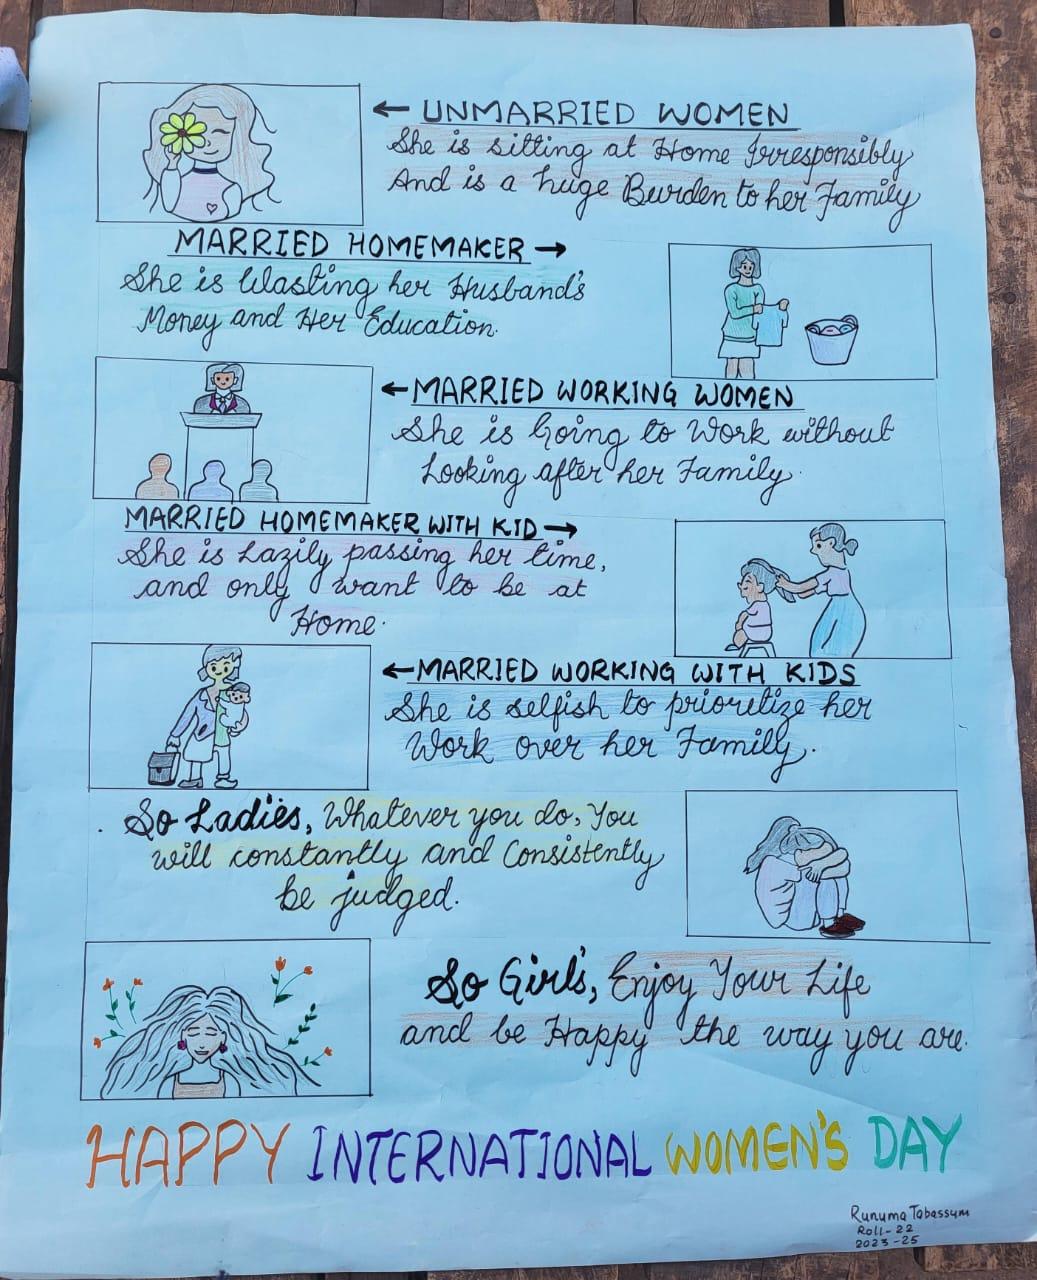 ← UNMARRIED WOMEN
She is sitting at Home Irresponsibly
And is a huge Burden to her Family
MARRIED HOMEMAKER →
She is Wasting her Husband's
Money and Her Education.
← MARRIED WORKING WOMEN
She is Going to Work without
Looking after her Family.
MARRIED HOMEMAKER WITH KID →
She is Lazily passing her time,
and only want to be at
Home.
← MARRIED WORKING WITH KIDS
She is selfish to prioretize her
Work over her Family.
So Ladies, Whatever you do, You
will constantly and Consistently
be judged.
So Girls', Enjoy Your Life
and be Happy the way you are.
HAPPY INTERNATIONAL WOMEN'S DAY
Runuma Tabassum
Roll-22
2023-25